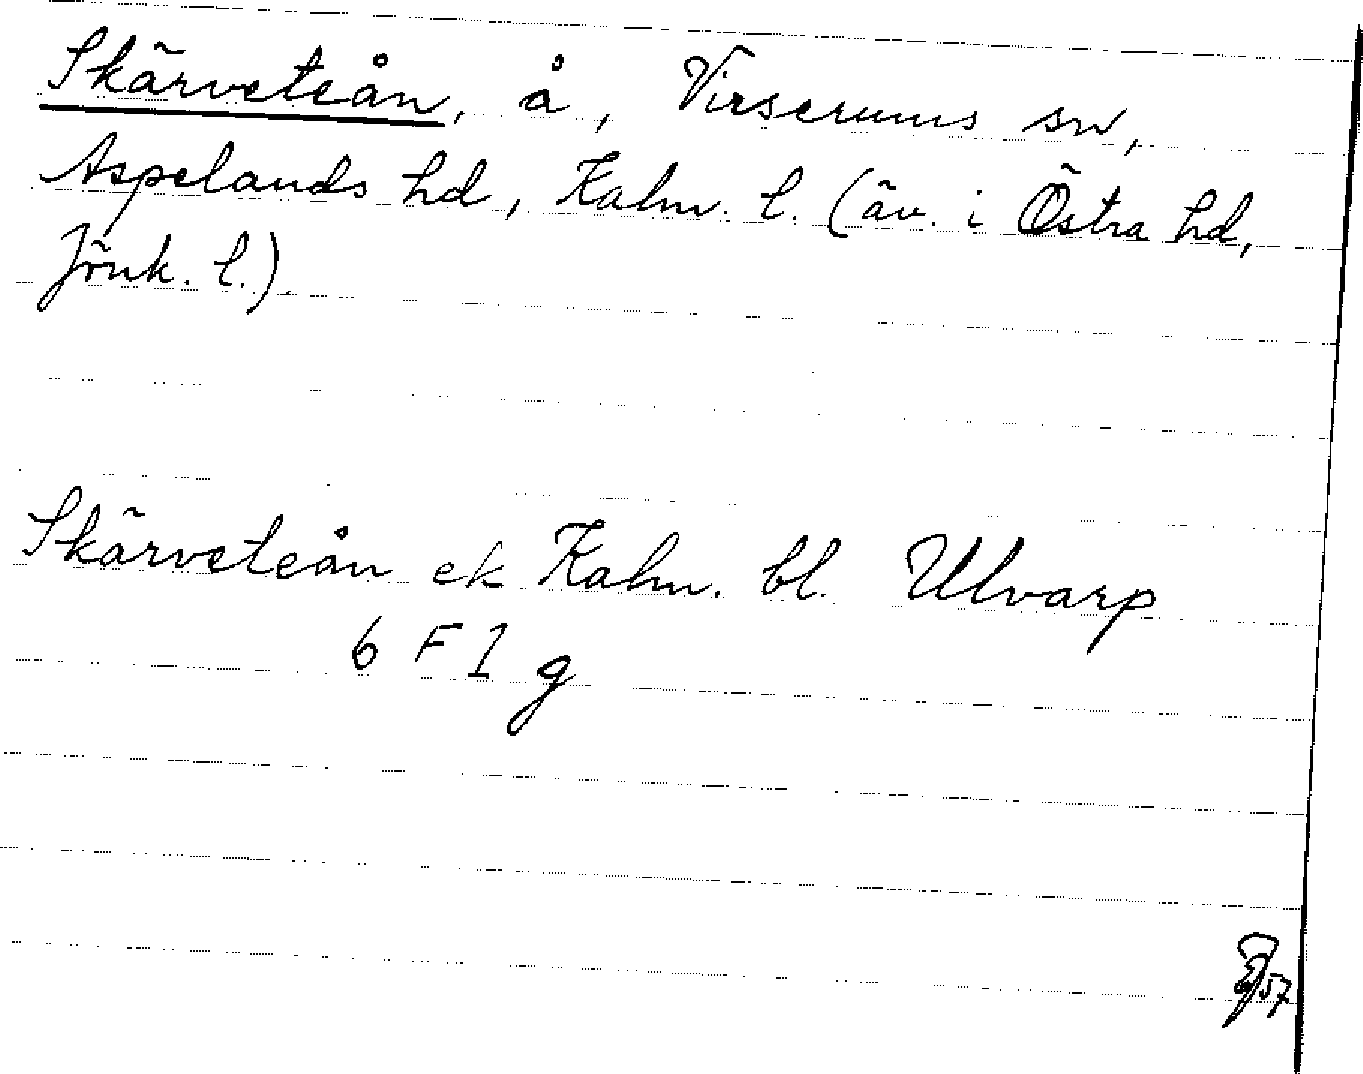 Skärveteån, å, Virserums sn,
Aspelands hd, Kalm. l. (äv. i Östra hd,
Jönk. l.).
Skärveteån ek Kalm. bl. Ulvarp
6 F 1 g
57